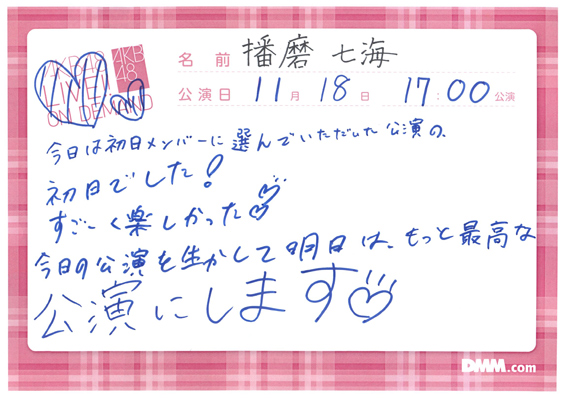 AKB48
LIVE!!
ON DEMAND
AKB
48
名前 播磨 七海
公演日 11月 18日 17:00公演
今日は初日メンバーに選んでいただいた公演の、
初日でした!
すごーく楽しかった
今日の公演を生かして明日は、もっと最高な
公演にします
DMM.com